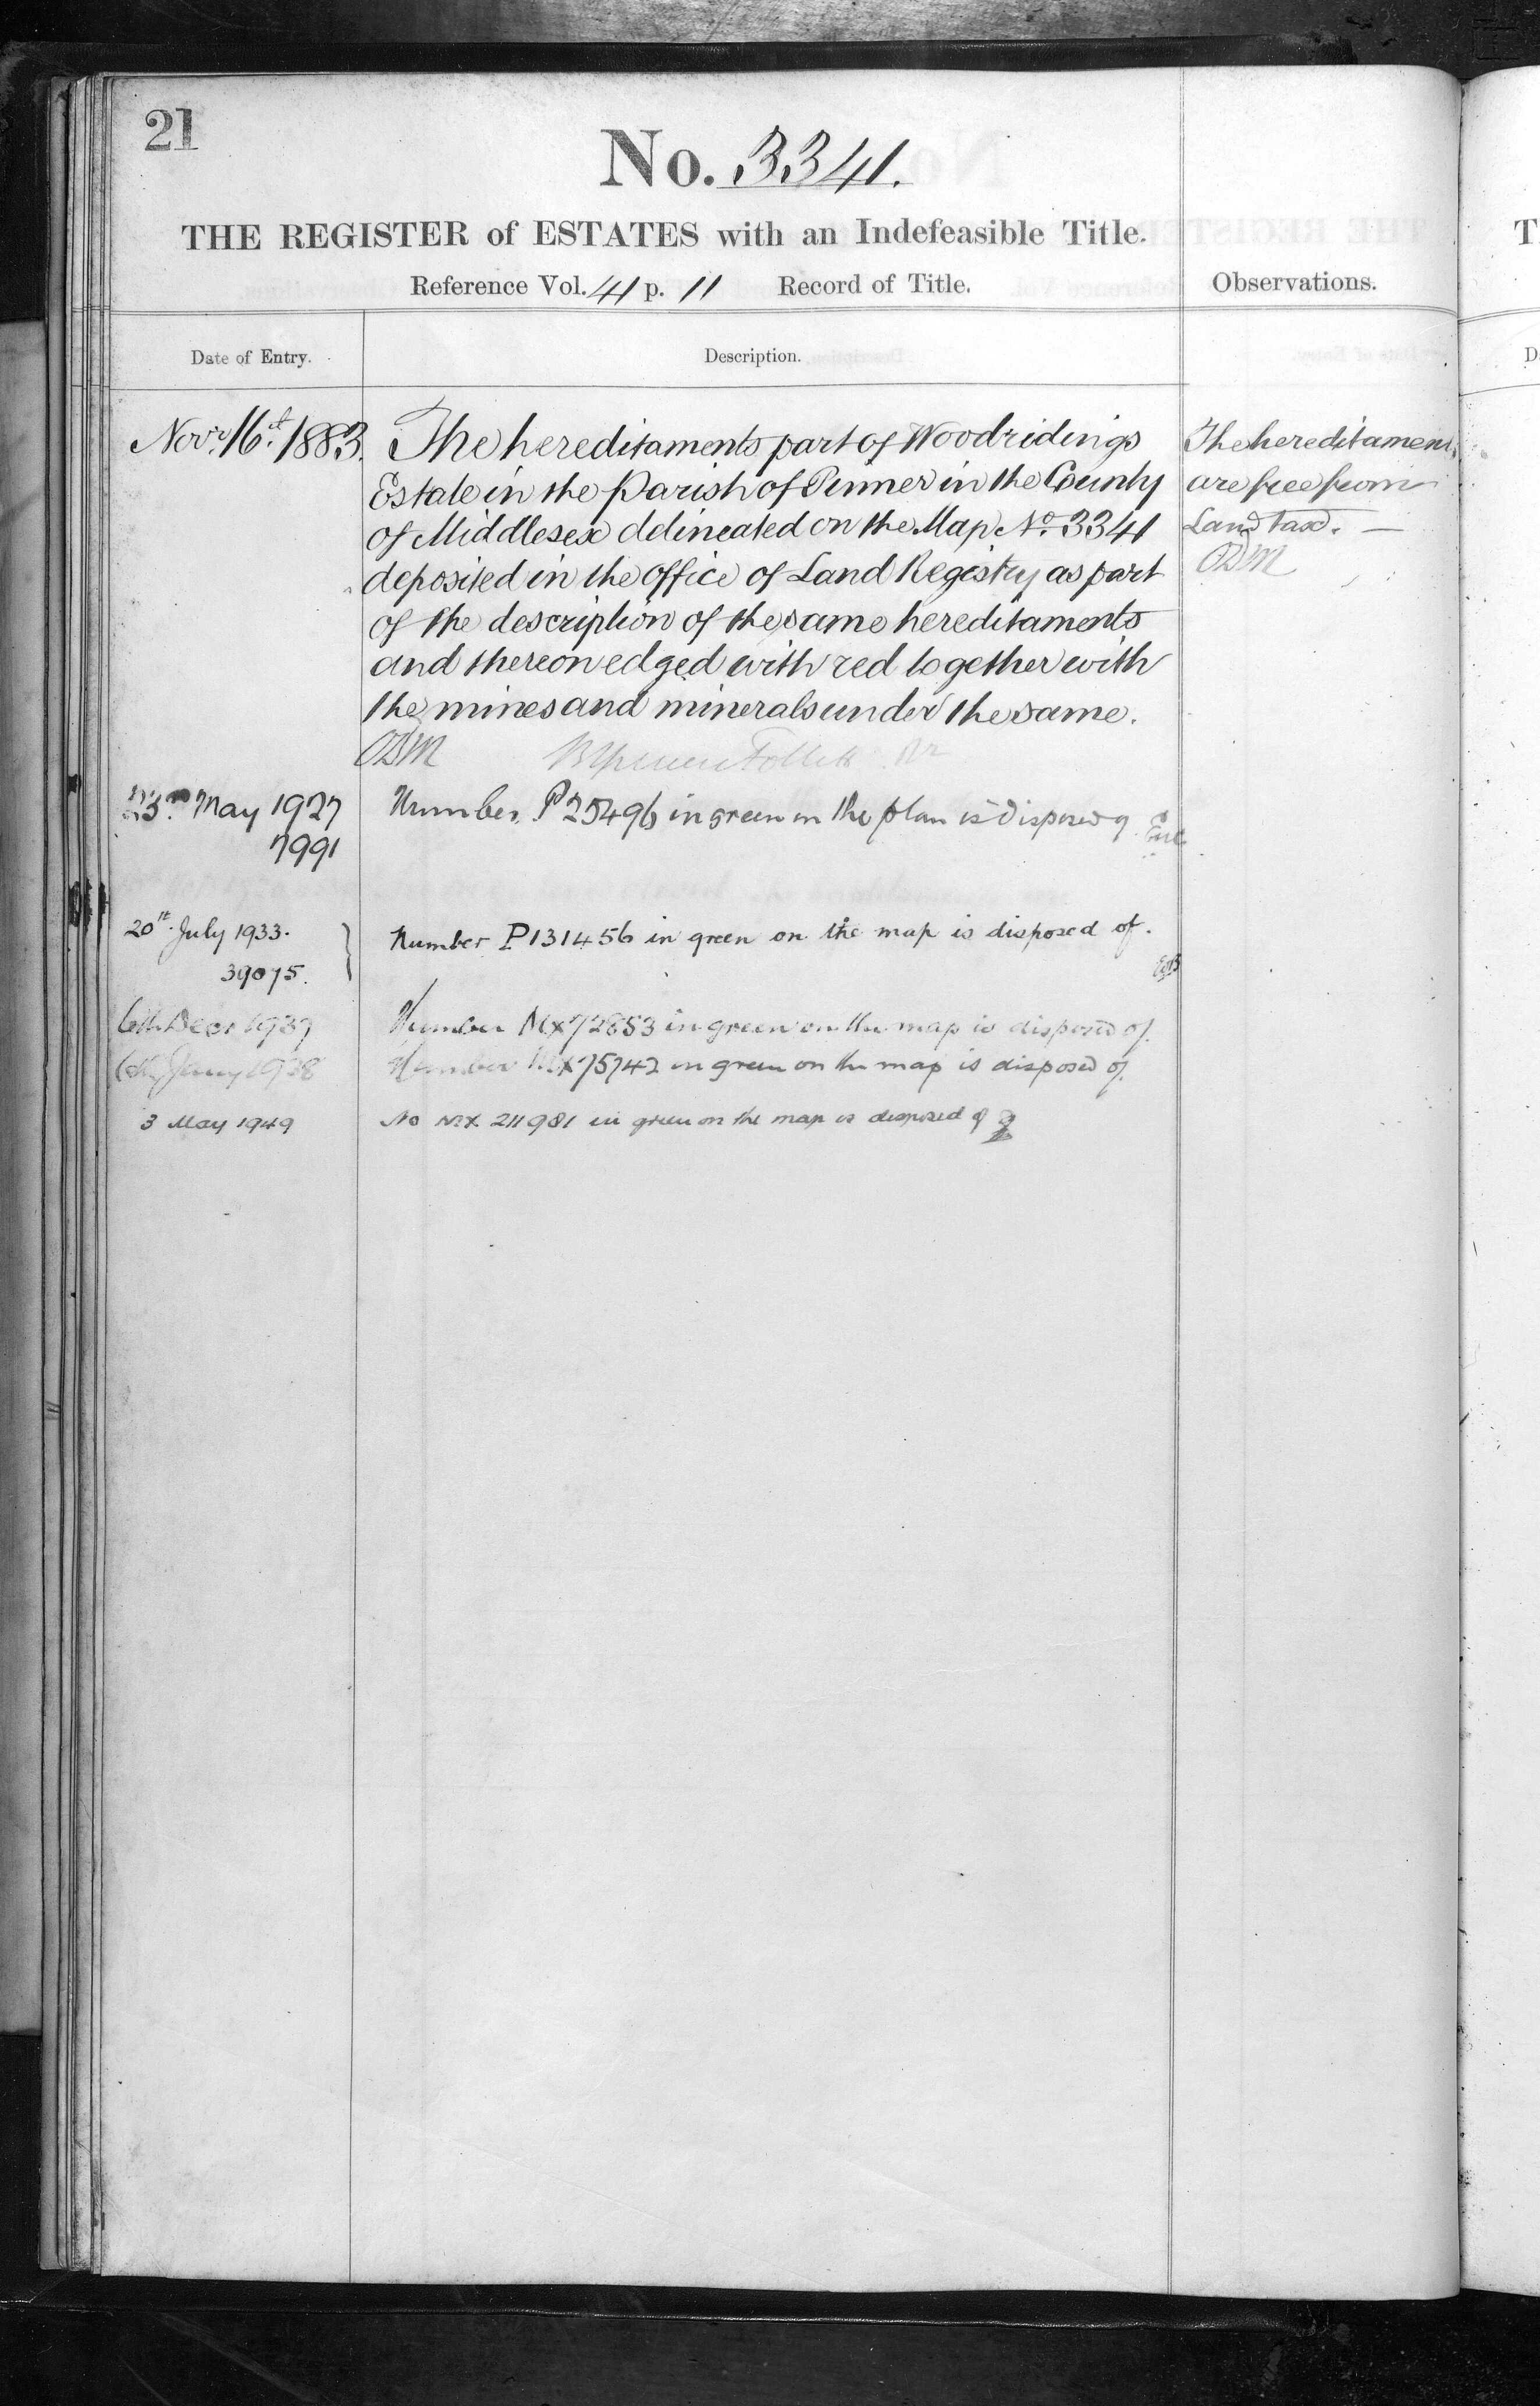 21
No. 3341.
THE REGISTER of ESTATES with an Indefeasible Title.
Reference Vol. 41 p. 11 Record of Title.
Observations.
Date of Entry.
Description.
Novr. 16th. 1883.
The hereditaments part of Woodridings
Estate in the Parish of Pinner in the County
of Middlesex delineated on the Map No. 3341
deposited in the office of Land Registry as part
of the description of the same hereditaments
and thereon edged with red together with
the mines and minerals under the same.
The hereditaments
are free from
Land tax. —
3rd May 1927
7991
Number P25496 in green on the plan is disposed of
20th July 1933.
39075.
Number P131456 in green on the map is disposed of.
6th Decr 1937
Number MX72653 in green on the map is disposed of.
6th Jany 1938
Number MX75742 in green on the map is disposed of.
3 May 1949
No MX 211981 in green on the map is disposed of